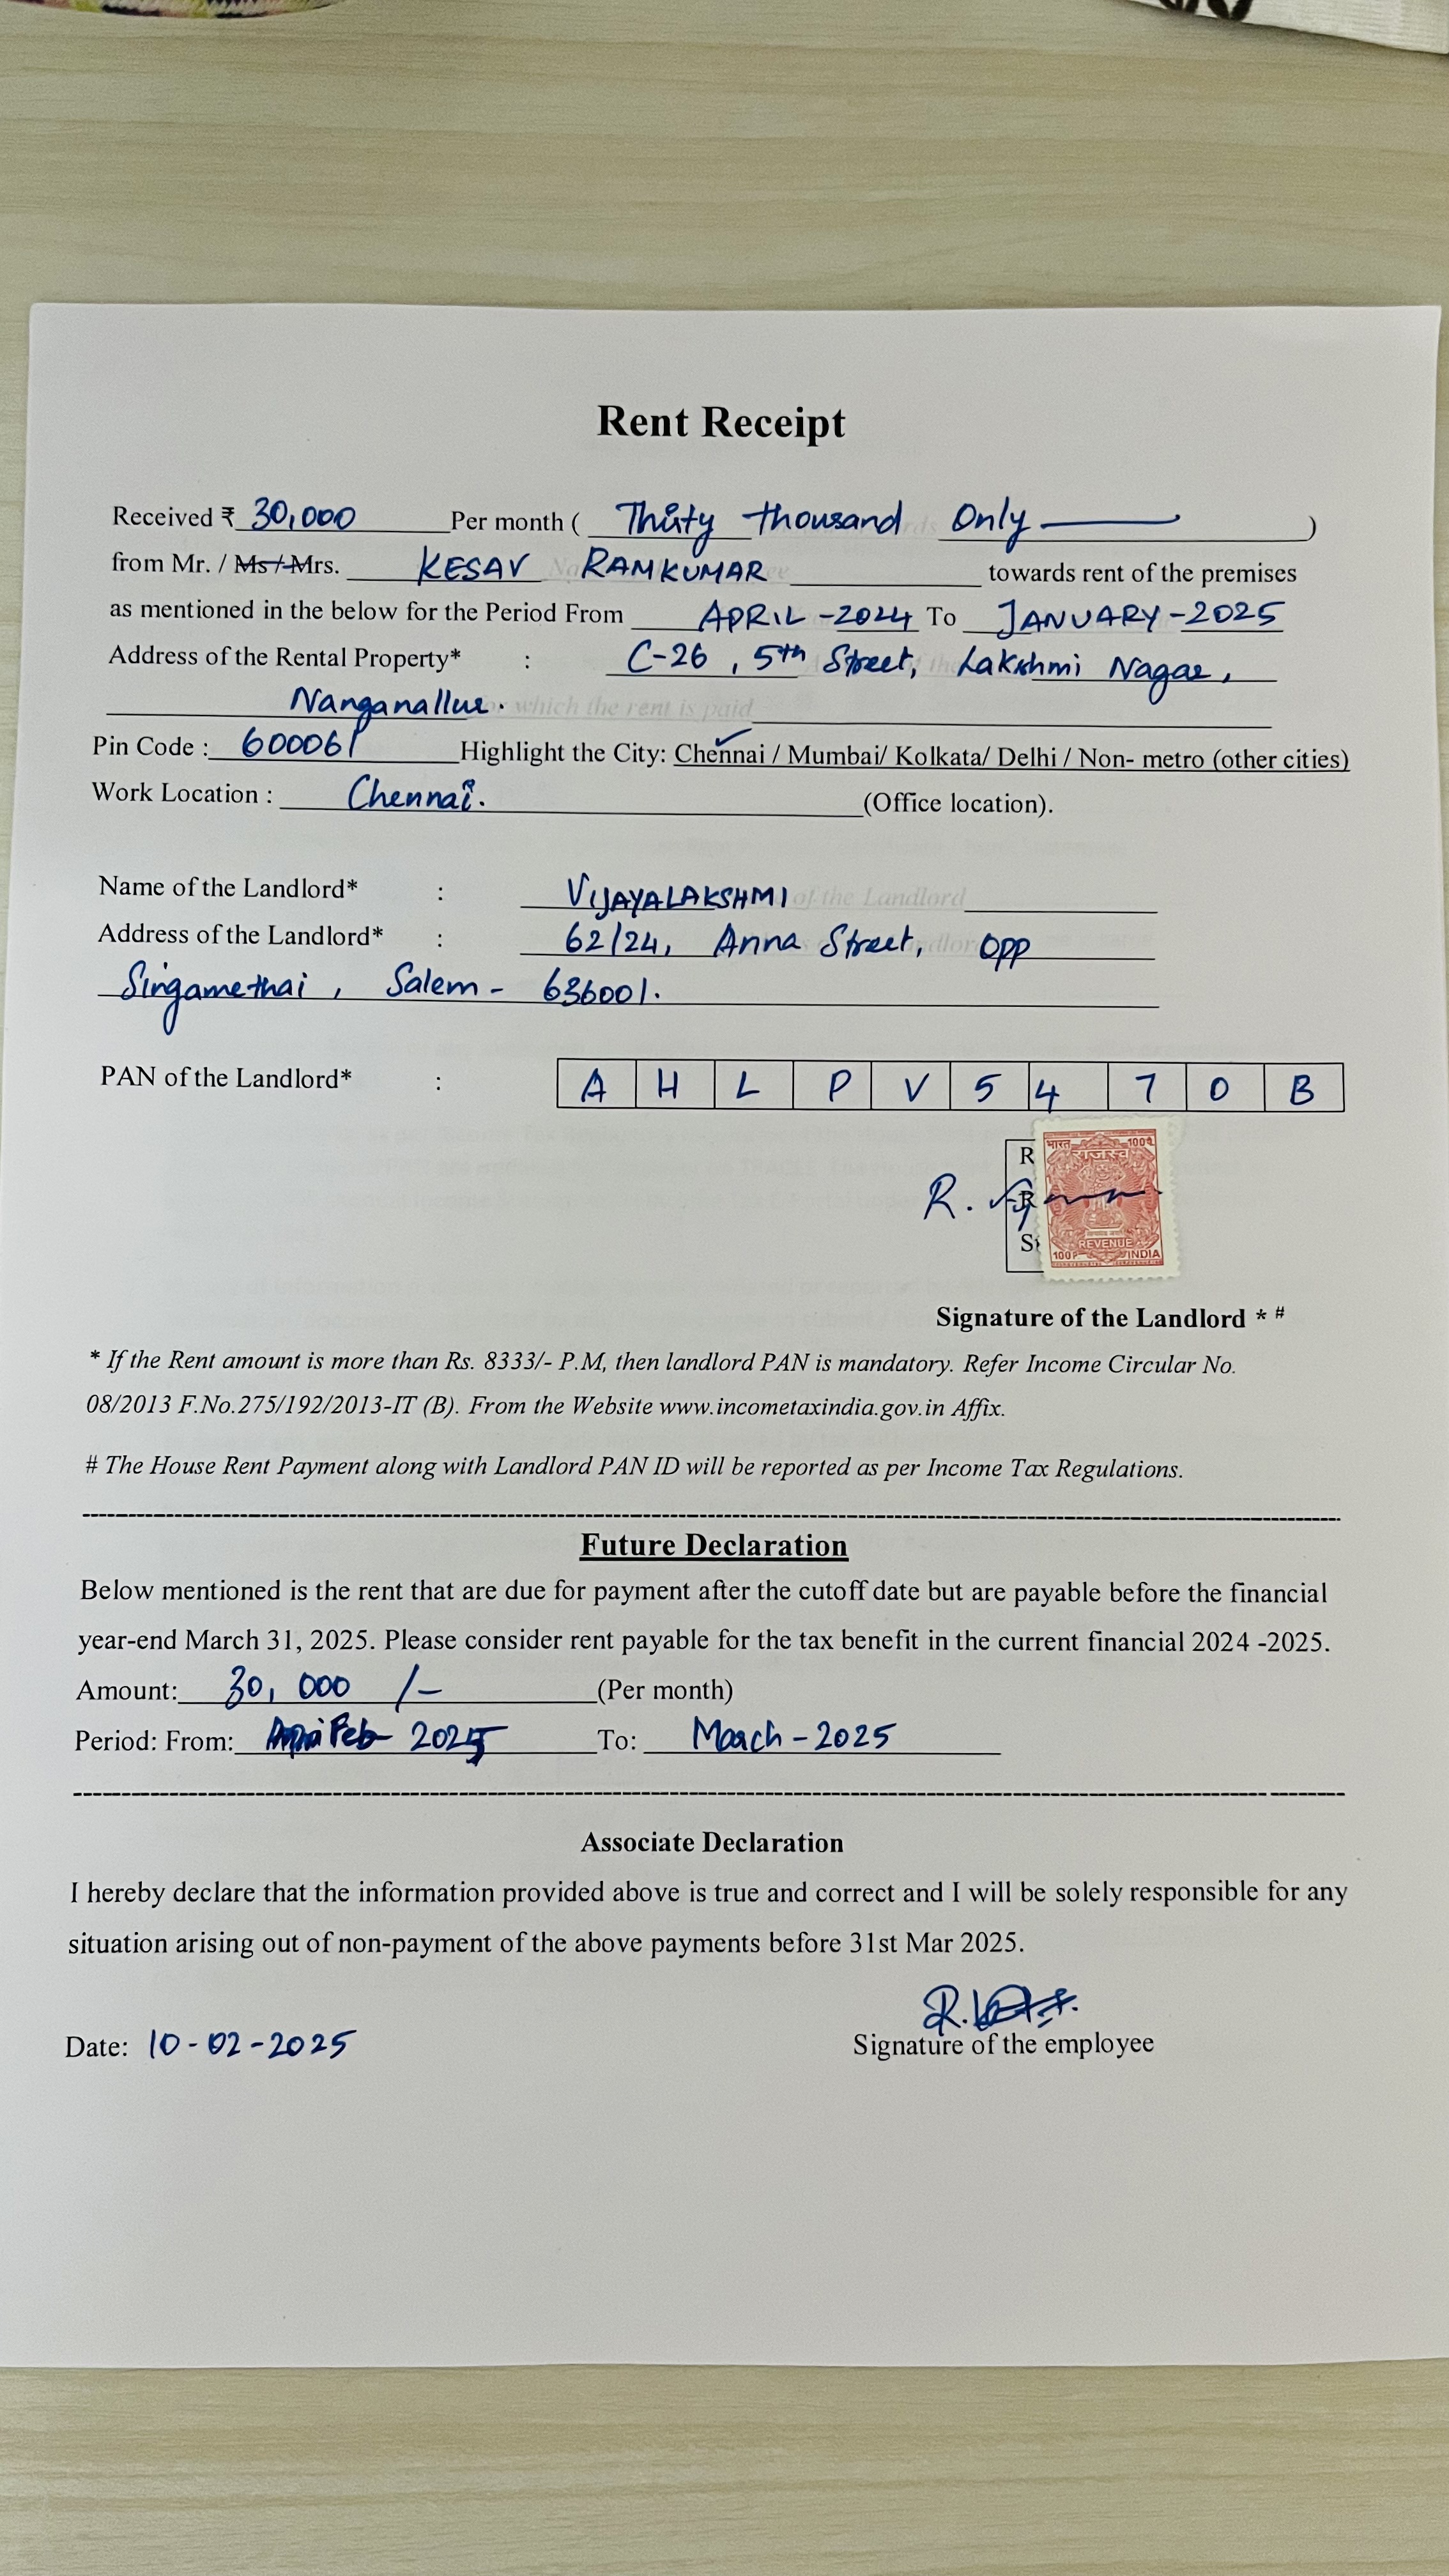 Rent Receipt
Received ₹ 30,000 Per month ( Thirty thousand Only )
from Mr. / Ms / Mrs. KESAV RAMKUMAR towards rent of the premises
as mentioned in the below for the Period From APRIL -2024 To JANUARY-2025
Address of the Rental Property* : C-26 , 5th Street, Lakshmi Nagar,
Nanganallur. for which the rent is paid
Pin Code : 600061 Highlight the City: Chennai / Mumbai/ Kolkata/ Delhi / Non- metro (other cities)
Work Location : Chennai. (Office location).
Name of the Landlord* : VIJAYALAKSHMI of the Landlord
Address of the Landlord* : 62/24, Anna Street, Opp
Singamethai , Salem - 636001.
PAN of the Landlord* : A H L P V 5 4 7 0 B
R
भारत 100पै
राजस्व
R.
R
S
REVENUE
100P INDIA
Signature of the Landlord * #
* If the Rent amount is more than Rs. 8333/- P.M, then landlord PAN is mandatory. Refer Income Circular No.
08/2013 F.No.275/192/2013-IT (B). From the Website www.incometaxindia.gov.in Affix.
# The House Rent Payment along with Landlord PAN ID will be reported as per Income Tax Regulations.
Future Declaration
Below mentioned is the rent that are due for payment after the cutoff date but are payable before the financial
year-end March 31, 2025. Please consider rent payable for the tax benefit in the current financial 2024 -2025.
Amount: 30, 000 /- (Per month)
Period: From: Feb 2025 To: March - 2025
Associate Declaration
I hereby declare that the information provided above is true and correct and I will be solely responsible for any
situation arising out of non-payment of the above payments before 31st Mar 2025.
Date: 10-02-2025
Signature of the employee